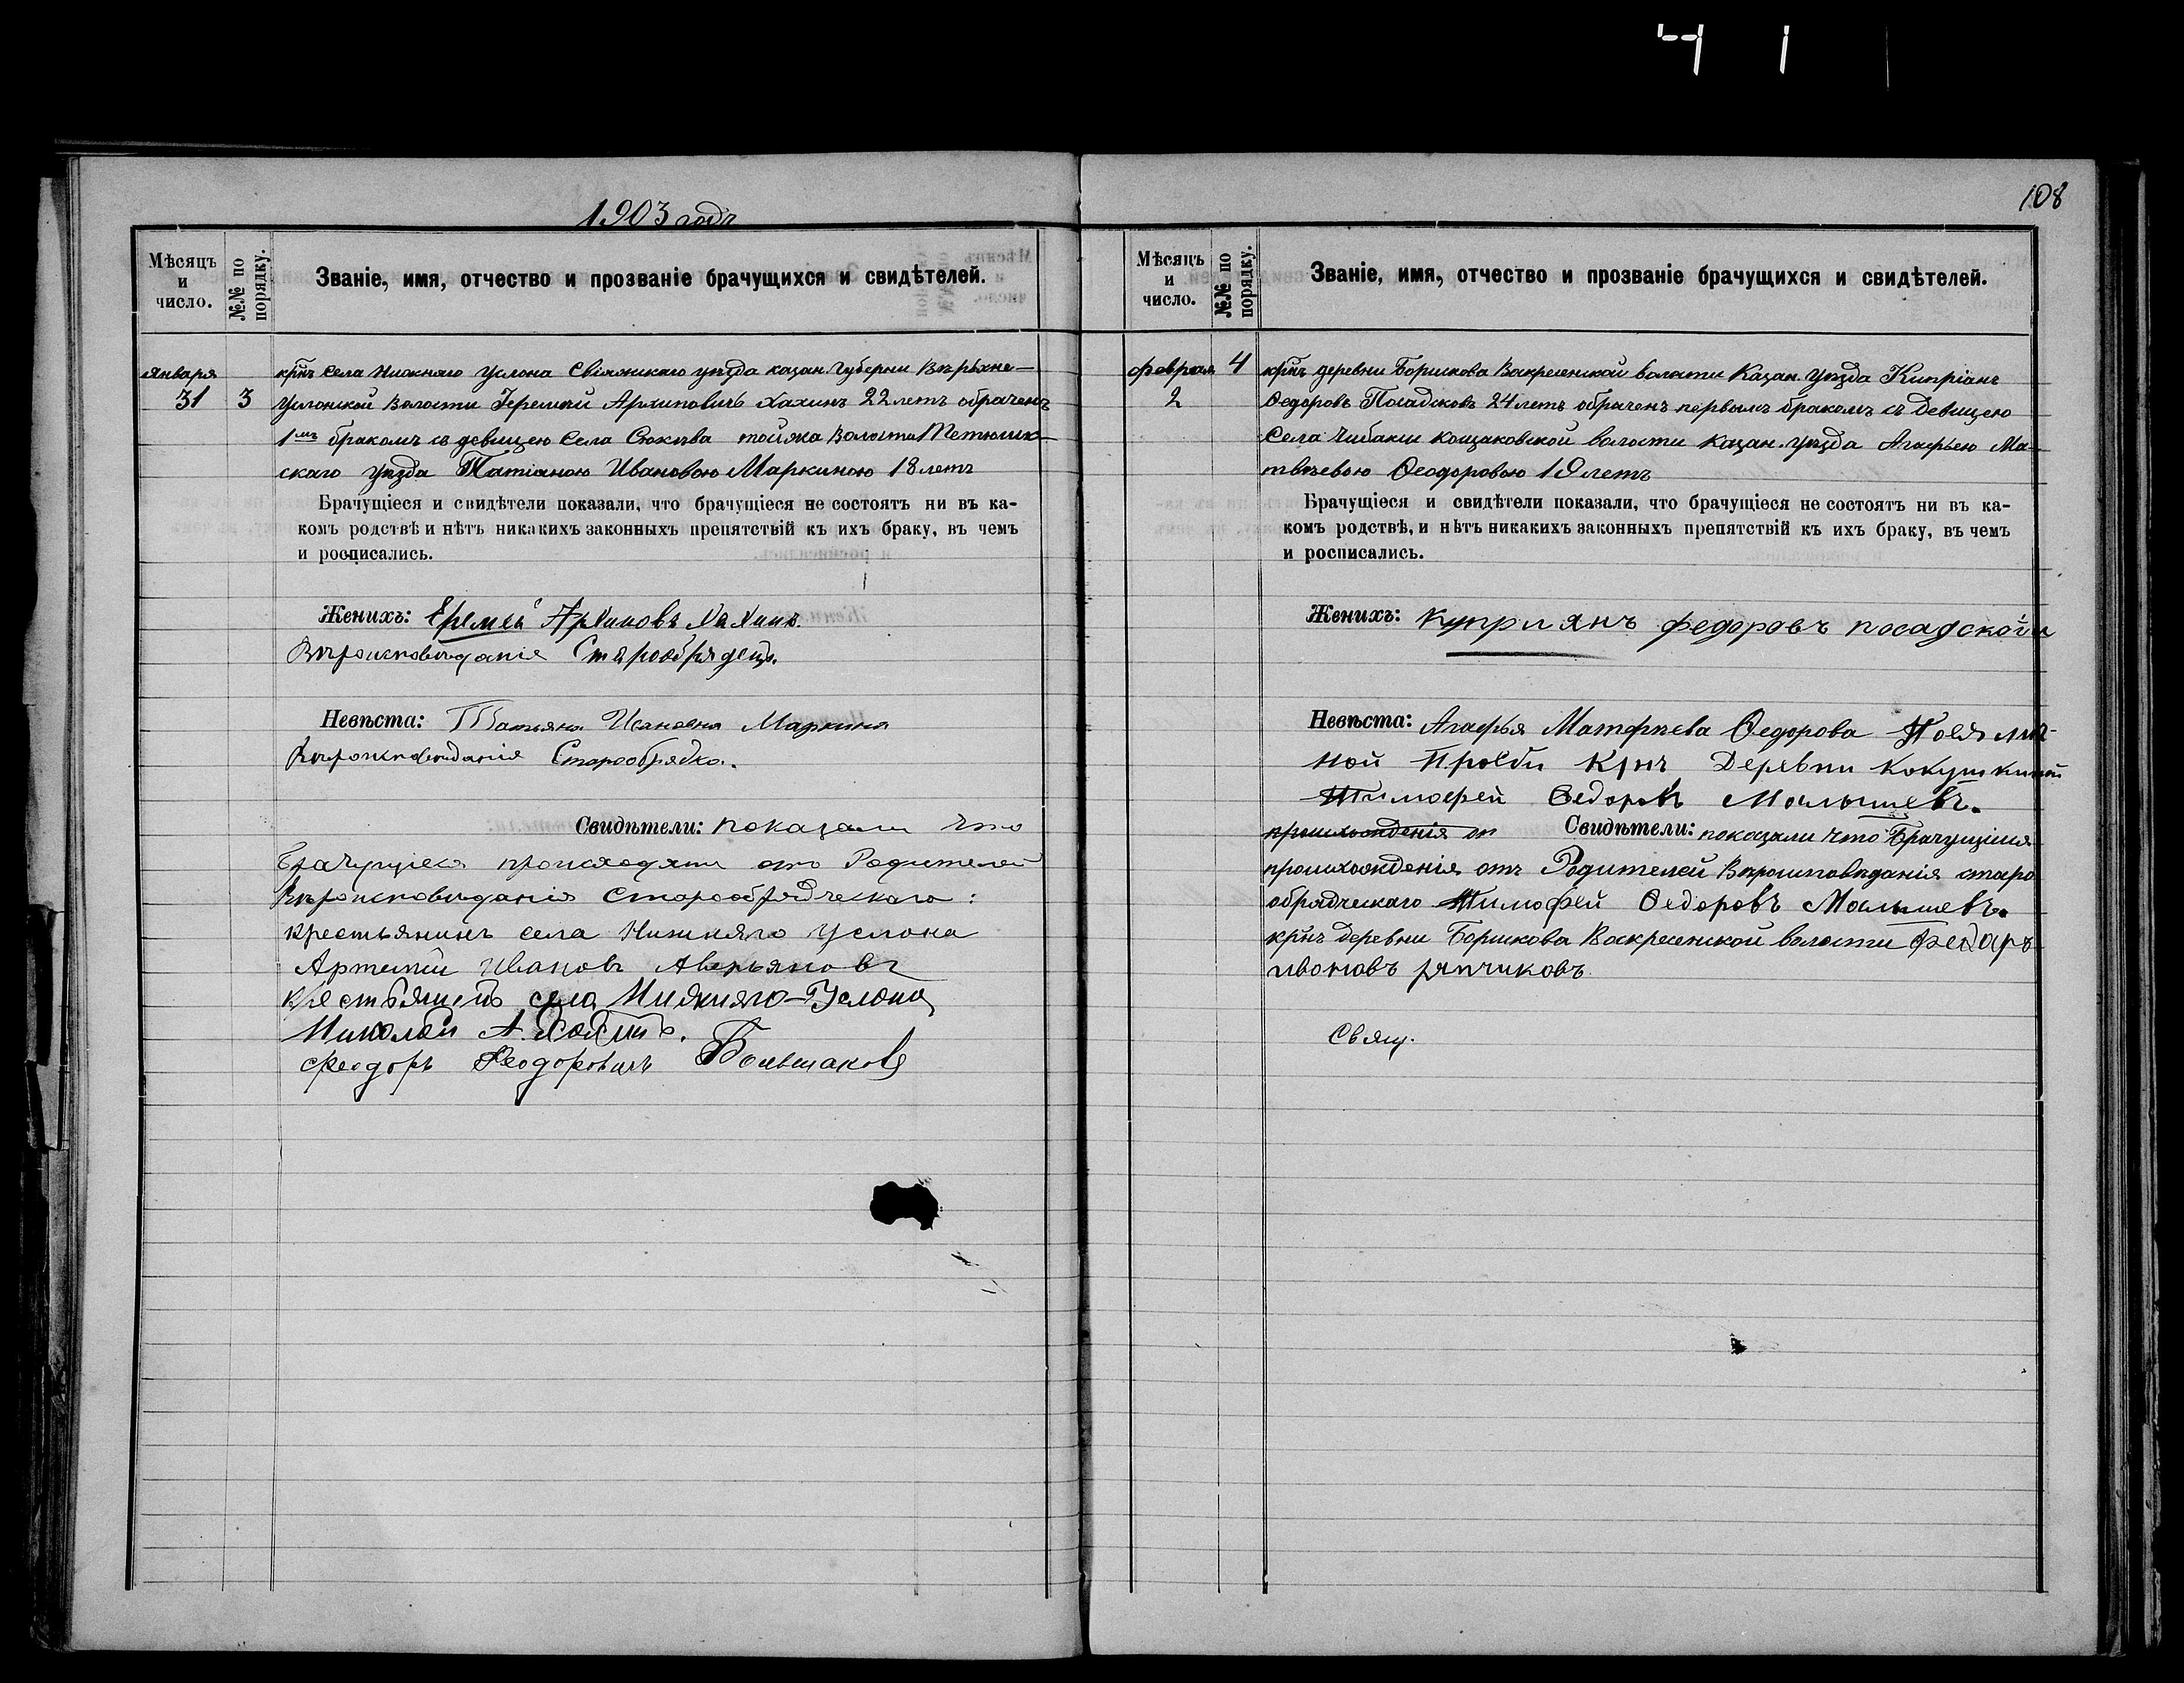 108
1903 годъ
Мѣсяцъ и число.
№№ по порядку.
Званіе, имя, отчество и прозваніе брачущихся и свидѣтелей.
января 31
3
крнъ села Нижняго Услона Свіяжскаго уѣзда казан. Губерни Верьхне-
Услонской Волости Іеремѣй Архиповичъ Хахинъ 22 летъ обрачен
1мъ бракомъ съ девицею Села Сюкѣва той же Волости Тетюшс-
скаго уѣзда Татіаною Ивановою Маркиною 18 летъ
Брачущіеся и свидѣтели показали, что брачущіеся не состоятъ ни въ ка-
комъ родствѣ и нѣтъ никакихъ законныхъ препятствій къ ихъ браку, въ чемъ
и росписались.
Женихъ: Еремеи Архиповъ Хахинъ.
Вѣроисповѣданіе Старообрядецъ.
Невѣста: Татьяна Ивановна Маркина
Вѣроисповѣданія Старообрядка.
Свидѣтели: показали что
Брачущіеся происходятъ отъ Родителей
Вѣроисповѣданія Старообрядческаго:
крестьянинъ села Нижняго Услона
Артемій Ивановъ Аверьяновъ
крестьянинъ села Нижняго-Услона
Николай А. Хахинъ.
Феодоръ Феодоровичъ Большаковъ
Мѣсяцъ и число.
№№ по порядку.
Званіе, имя, отчество и прозваніе брачущихся и свидѣтелей.
февраля 2
4
крнъ деревни Боршкова Воскресенской волости Казан. Уѣзда Кипріанъ
Ѳедоровъ Посадсковъ 24 летъ обраченъ первымъ бракомъ съ девицею
Села Чибакси кощаковской волости Казан. уѣзда Агафьею Ма-
твѣевою Ѳеодоровою 19 летъ
Брачущіеся и свидѣтели показали, что брачущіеся не состоятъ ни въ ка-
комъ родствѣ, и нѣтъ никакихъ законныхъ препятствій къ ихъ браку, въ чемъ
и росписались.
Женихъ: Куприянъ федоровъ посадской
Невѣста: Агафья Матфѣева Ѳедорова По ея лич-
ной прозби крнъ Деревни Кокушкиной
Тимофей Ѳедоровъ Малышевъ.
происхожденія от Свидѣтели: показали что Брачущіися
происхожденія отъ Родителей Вѣроисповѣданія старо
обрядческаго Тимофей Ѳедоровъ Малышевъ.
крнъ деревни Боршкова Воскресенской волости Федаръ
ивоновъ ряпчиковъ
Свящ.